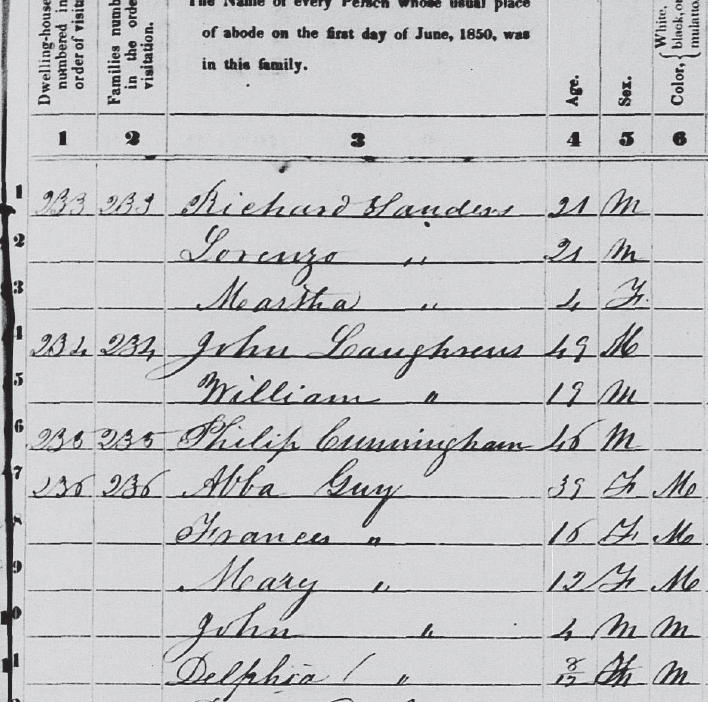 Dwelling-house numbered in order of visita
Families numb in the orde visitation.
The Name of every Person whose usual place
of abode on the first day of June, 1850, was
in this family.
Age.
Sex.
Color, { White, black, or mulatto
1 2 3 4 5 6
1 233 233 Richard Sanders 21 M
2 Lorenzo " 21 M
3 Martha " 4 F
4 234 234 John Laughrens 49 M
5 William " 19 M
6 235 235 Philip Cunningham 46 M
7 236 236 Abba Guy 39 F M
8 Frances " 16 F M
9 Mary " 12 F M
10 John " 4 M M
11 Delphia " 8/12 M